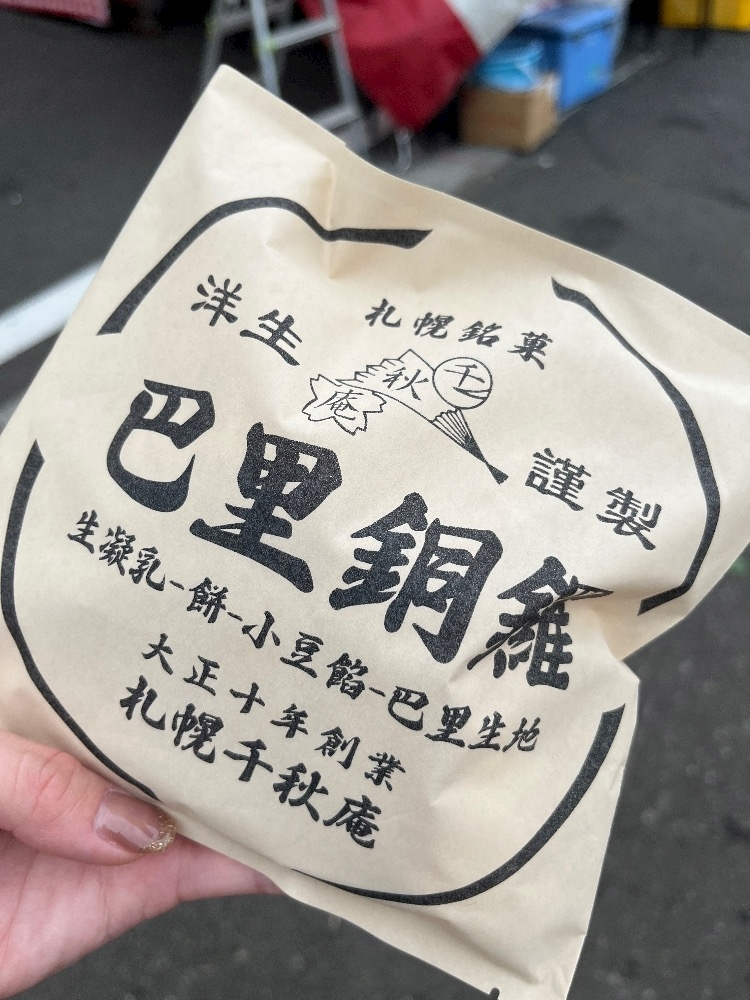 札幌銘菓
洋生
千
秋
庵
謹製
巴里銅羅
生凝乳-餅-小豆餡-巴里生地
大正十年創業
札幌千秋庵